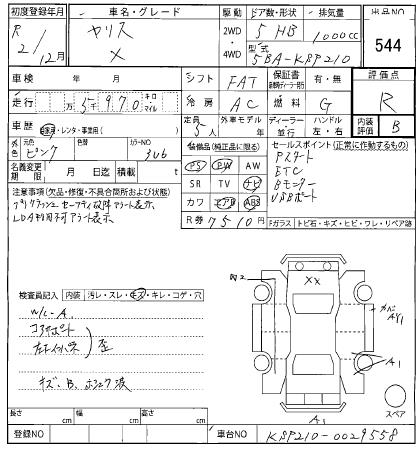 初度登録年月 車名・グレード 駆動 ドア数・形状 排気量 出品NO
R 2/12月 ヤリス X 2WD・4WD 5 HB 1000cc
型式 5BA-KSP210
544
車検 年 月 シフト FAT 保証書 有・無 評価点
走行 万 5千 970 キロ・マイル 冷房 AC 燃料 G R
車歴 自家用・レンタ・事業用( ) 定員 5人 外車モデル 年 ディーラー 並行 ハンドル 左・右 内装 B
外色 元色 ピンク 色替 カラーNO 3U6
装備品(純正品に限る) セールスポイント(正常に動作するもの)
名義変更期限 月 日迄 積載 t
PS PW AW
SR TV ナビ
カワ エアB ABS
R券 7510円
Pスタート
ETC
Bモニター
USBポート
注意事項(欠品・修復・不具合箇所および状態)
プリクラッシュセーフティ故障アラート表示
LDA利用不可アラート表示
Fガラス トビ石・キズ・ヒビ・ワレ・リペア跡
検査員記入 内装 汚レ・スレ・キズ・キレ・コゲ・穴
W/C-A.
コアサポート
左インパネ
歪
キズ、B、ホシュウ波
XX
カバー AY1
A1
A1
スペア
長さ cm 幅 cm 高さ cm
登録NO 車台NO KSP210-0029558